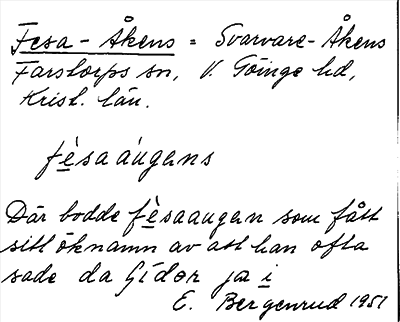 Fesa-Åkens = Svarvare-Åkens
Farstorps sn, V. Göinge hd,
Krist. län.
fèsaáugens
Där bodde fèsaaugen som fått
sitt öknamn av att han ofta
sade da Gídor ja i
E. Bergenrud 1951